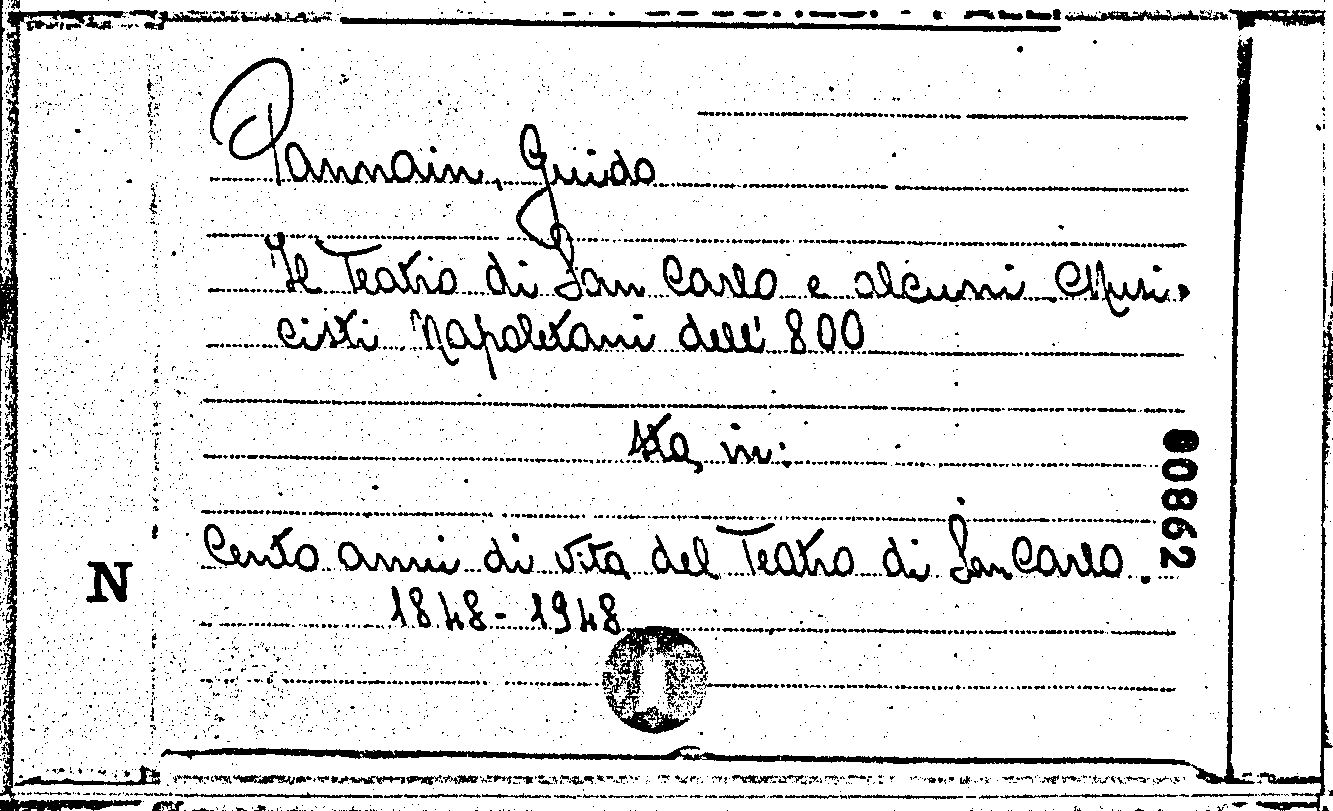 Pannain, Guido
Il Teatro di San Carlo e alcuni Musi-
cisti Napoletani dell' 800
Sta in:
Cento anni di vita del Teatro di San Carlo.
1848-1948
N
00862